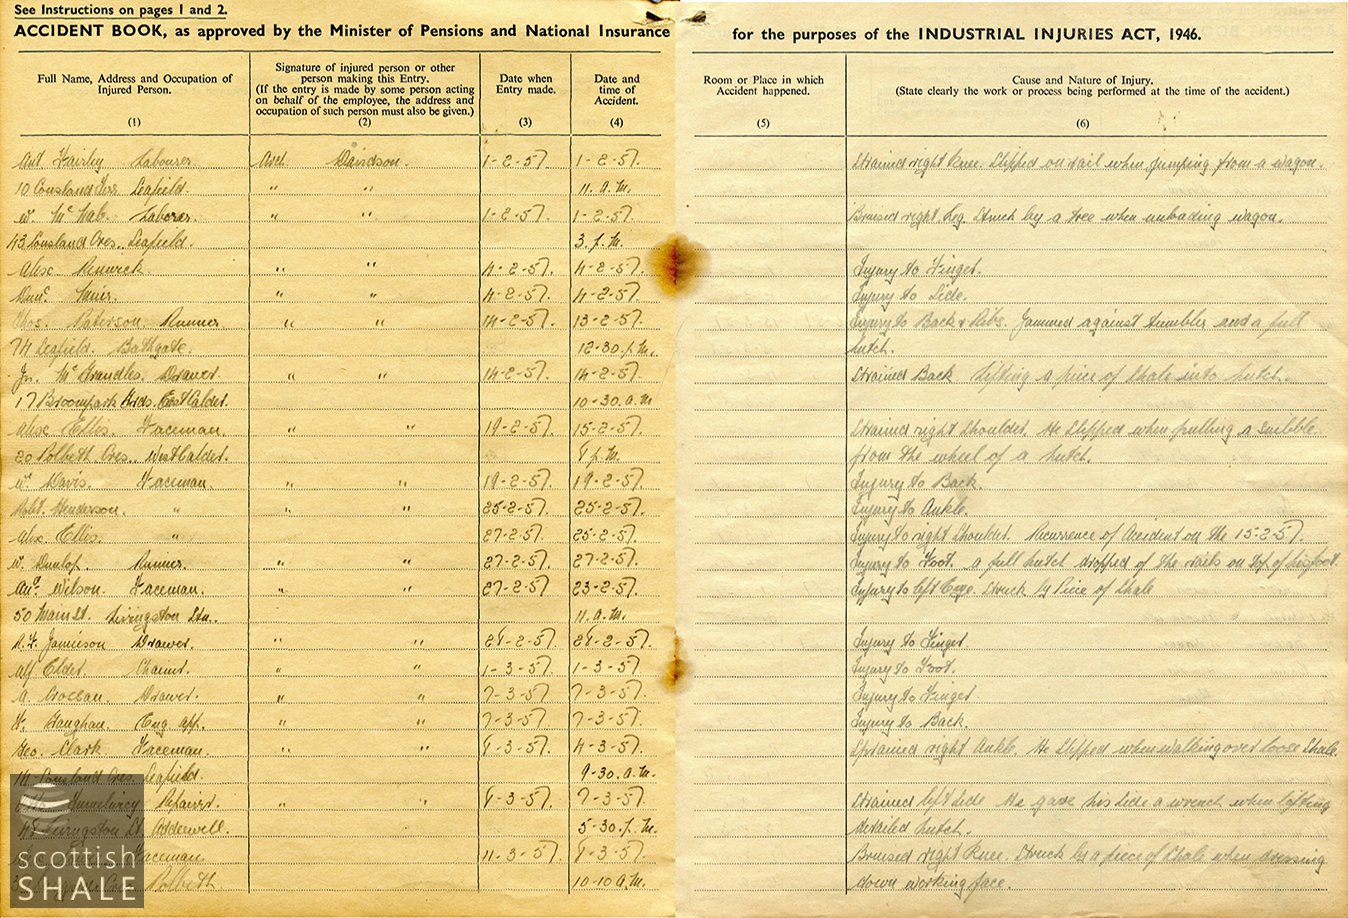 See Instructions on pages 1 and 2.
ACCIDENT BOOK, as approved by the Minister of Pensions and National Insurance for the purposes of the INDUSTRIAL INJURIES ACT, 1946.
Full Name, Address and Occupation of Injured Person. (1)
Signature of injured person or other person making this Entry. (If the entry is made by some person acting on behalf of the employee, the address and occupation of such person must also be given.) (2)
Date when Entry made. (3)
Date and time of Accident. (4)
Room or Place in which Accident happened. (5)
Cause and Nature of Injury. (State clearly the work or process being performed at the time of the accident.) (6)
Ant Fairley Labourer Arch. Davidson. 1-2-57. 1-2-57. Strained right Knee. Slipped on rail when jumping from a wagon.
10 Cousland Terr. Seafield. " " 11. a.m.
W. McNab. Laborer. " " 1-2-57. 1-2-57. Bruised right Leg. Struck by a tree when unloading wagon.
43 Cousland Cres. Seafield. 3.p.m.
Alex. Renwick " " 4-2-57. 4-2-57. Injury to Finger.
Dunc. Muir. " " 4-2-57. 4-2-57. Injury to Side.
Thos. Paterson. Runner. " " 14-2-57. 13-2-57. Injury to Back & Ribs. Jammed against tumbler and a full
74 Seafield. Bathgate. 12-30.p.m. hutch.
Jn. McCrandles. Drawer " " 14-2-57. 14-2-57. Strained Back Lifting a piece of Shale into hutch.
17 Broompark Crds. East Calder. 10-30.a.m
Alex Ellis. Faceman. " " 19-2-57. 15-2-57. Strained right Shoulder. He Slipped when pulling a snibble
20 Polbeth Cres. West Calder. 8 p.m. from the wheel of a hutch.
W. Davis. Faceman. " " 19-2-57. 19-2-57. Injury to Back.
Robt. Henderson. " " " 25-2-57. 25-2-57. Injury to Ankle.
Alex. Ellis. " 27-2-57. 25-2-57. Injury to right Shoulder. Recurrence of Accident on the 15-2-57.
W. Dunlop. Runner. " " 27-2-57. 27-2-57. Injury to Foot. a full hutch dropped of the rails on top of his foot.
And. Wilson. Faceman. " " 27-2-57. 23-2-57. Injury to left Eye. Struck by Piece of Shale
50 Main St. Livingston Stn. 11. a.m.
R.F. Jamieson Drawer. " " 28-2-57. 28-2-57. Injury to Finger.
Alf Elder. " " 1-3-57. 1-3-57. Injury to Foot.
A. Drawer. " " 7-3-57. 7-3-57. Injury to Finger
F. Gaughan. Eng. App. " " 7-3-57. 7-3-57. Injury to Back.
Geo. Clark Faceman. " " 8-3-57. 4-3-57. Sprained right Ankle. He Slipped when walking over loose Shale.
Cousland Cres. Seafield. 9-30.a.m.
Repairer " " 8-3-57. 7-3-57. Strained left Side He gave his Side a wrench when lifting
Livingston St. Addiewell. 5-30.p.m. derailed hutch.
Faceman 11-3-57. 8-3-57. Bruised right Knee. Struck by a piece of Shale when dressing
Polbeth 10-10 A.M. down working face.
scottish
SHALE